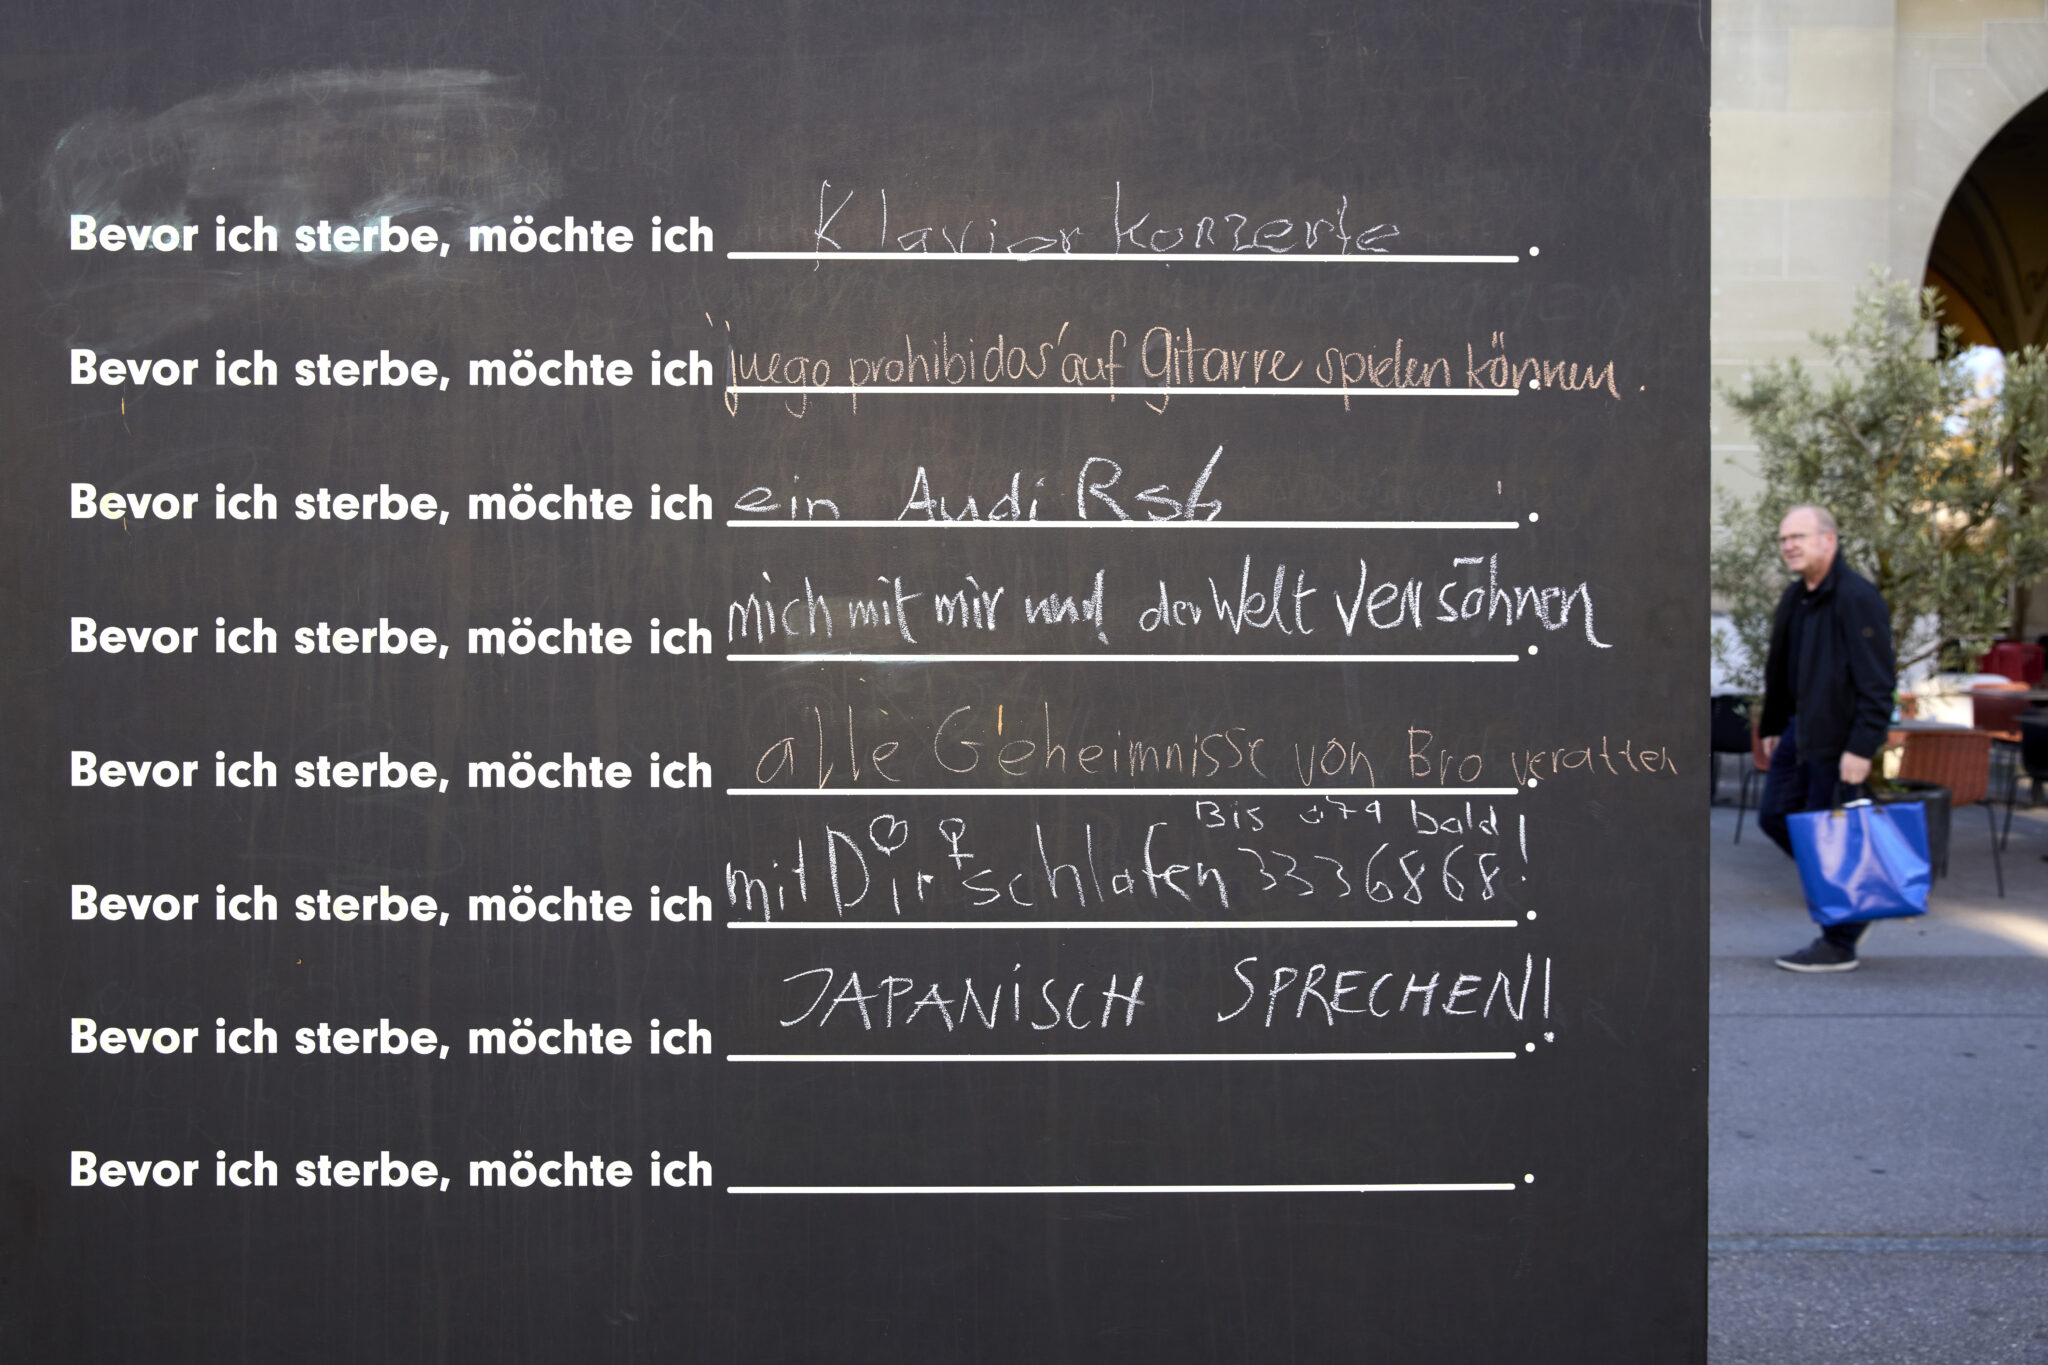 Bevor ich sterbe, möchte ich Klavierkonzerte.
Bevor ich sterbe, möchte ich 'juego prohibidos' auf Gitarre spielen können.
Bevor ich sterbe, möchte ich ein Audi Rs6.
Bevor ich sterbe, möchte ich mich mit mir und der Welt versöhnen.
Bevor ich sterbe, möchte ich alle Geheimnisse von Bro veratten.
Bis bald
Bevor ich sterbe, möchte ich mit Dir schlafen 3336868!.
Bevor ich sterbe, möchte ich JAPANiSCH SPRECHEN!.
Bevor ich sterbe, möchte ich .